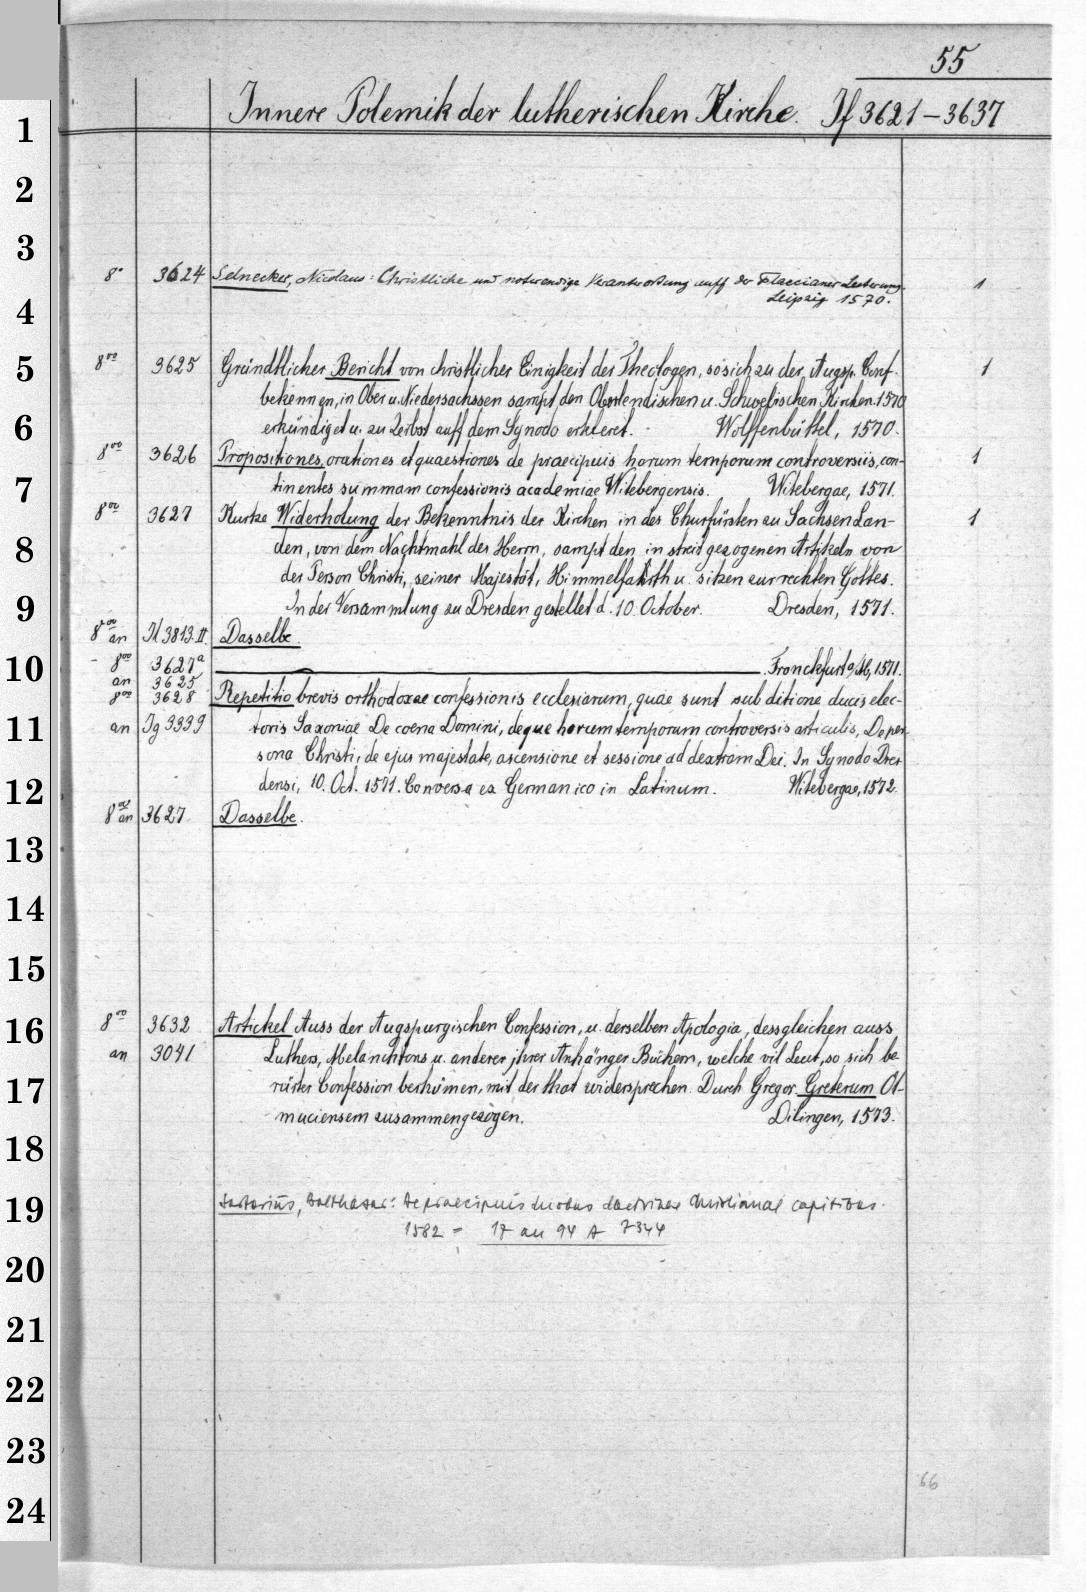 55
Innere Polemik der lutherischen Kirche. If 3621–3637
1
2
3
8° 3624 Selnecker, Nicolaus: Christliche und notwendige Verantwortung auff der Flaccianer Lesterung. 1
Leipzig 1570.
4
5
8vo 3625 Gründtlicher Bericht von christlicher Einigkeit der Theologen, so sich zu der Augsp. Conf. 1
bekennen, in Ober u. Niedersachssen sampt den Oberlendischen u. Schwebischen Kirchen 1570
6
erkündiget u. zu Zerbst auff dem Synodo erkleret. Wolffenbüttel, 1570.
8vo 3626 Propositiones, orationes et quaestiones de praecipuis horum temporum controversiis, con- 1
7
tinentes summam confessionis academiae Witebergensis. Witebergae, 1571.
8vo 3627 Kurtze Widerholung der Bekenntnis der Kirchen in des Churfürsten zu Sachsen Lan- 1
8
den, von dem Nachtmahl des Herrn, sampt den in streit gezogenen Artikeln von
der Person Christi, seiner Majestät, Himmelfahrth u. sitzen zur rechten Gottes.
9
In der Versammlung zu Dresden gestellet d. 10. October. Dresden, 1571.
8vo an Il 3813.II. Dasselbe.
10
8vo 3627a Franckfurt a/M, 1571.
an 3625
8vo 3628 Repetitio brevis orthodoxae confessionis ecclesiarum, quae sunt sub ditione ducis elec-
11
an Ig 3339 toris Saxoniae De coena Domini, deque horum temporum controversis articulis, De per-
sona Christi, de ejus majestate, ascensione et sessione ad dextram Dei. In Synodo Dres-
12
densi, 10. Oct. 1571. Conversa ex Germanico in Latinum. Witebergae, 1572.
8vo an 3627 Dasselbe.
13
14
15
16
8vo 3632 Artickel Auss der Augspurgischen Confession, u. derselben Apologia, dessgleichen auss
an 3041 Luthers, Melanchtons u. anderer jhrer Anhänger Büchern, welche vil Leut, so sich be
17
rürter Confession berhümen, mit der that widersprechen. Durch Gregor. Greterum Ol-
muciensem zusammengezogen. Dilingen, 1573.
18
19
Sartorius, Balthasar: De praecipuis doctrinae Christianae capitibus.
1582 = 17 an 94 A 7344
20
21
22
23
66
24